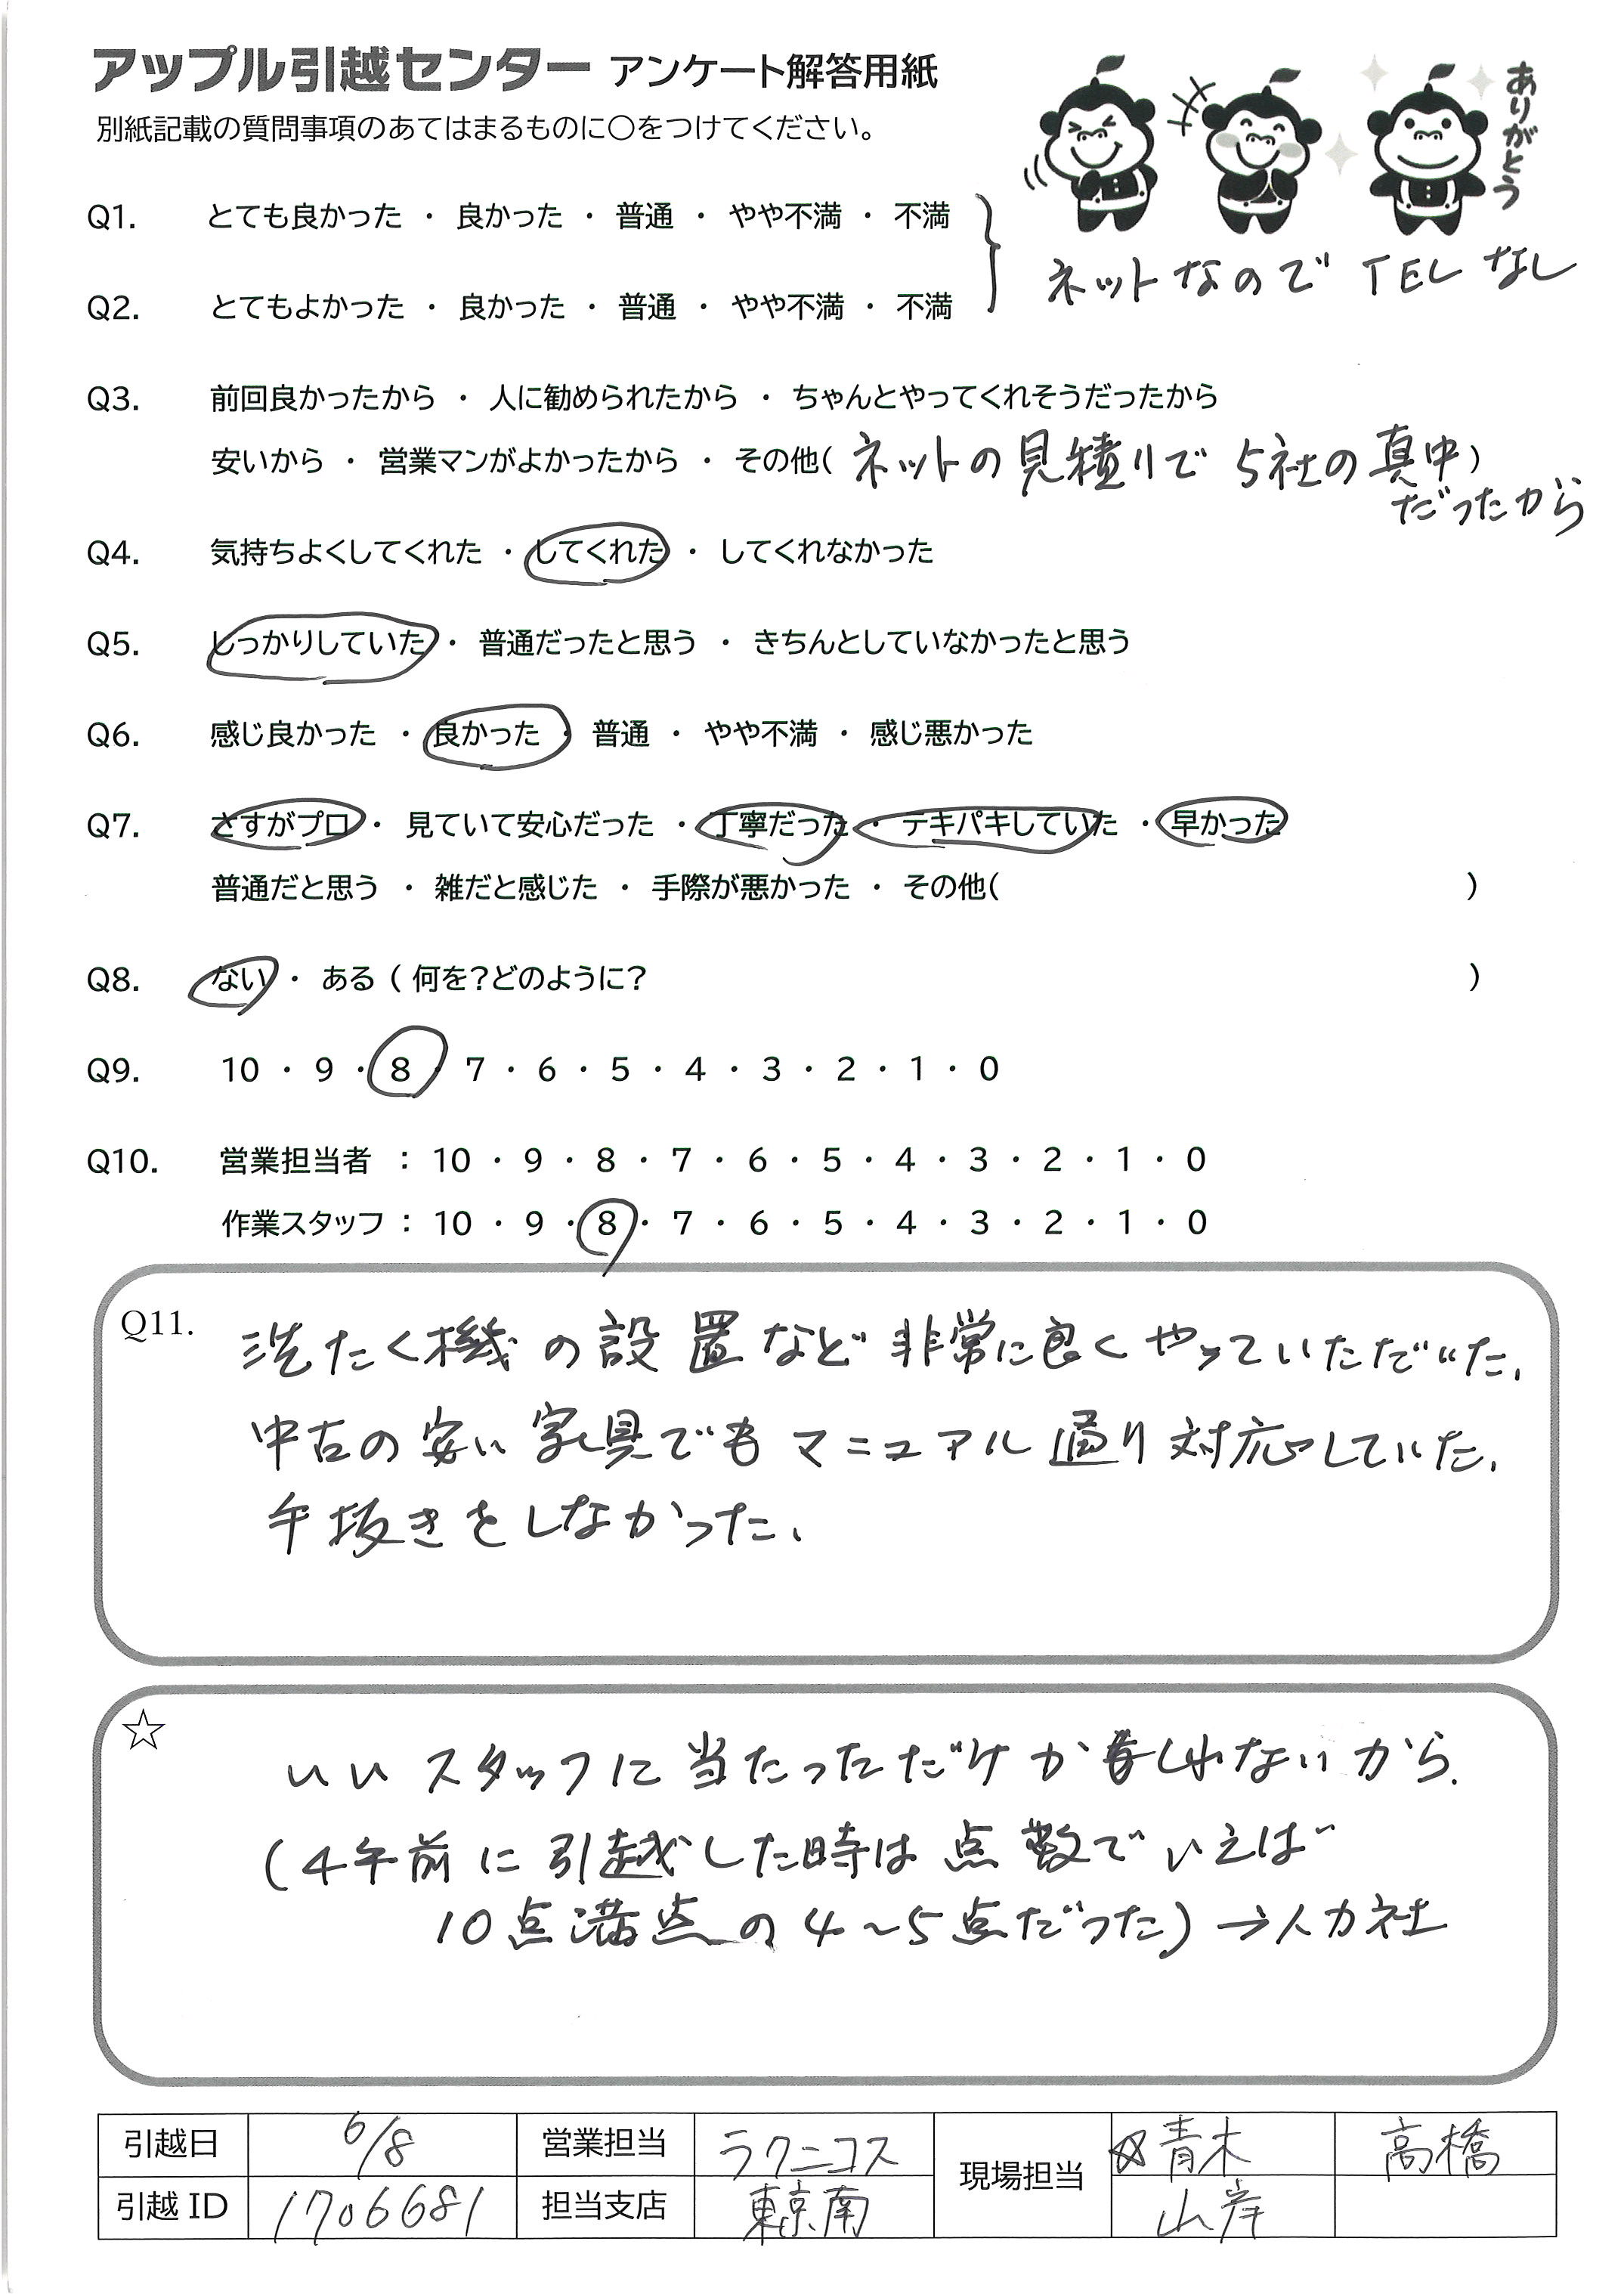 アップル引越センター アンケート解答用紙
別紙記載の質問事項のあてはまるものに○をつけてください。
ありがとう
Q1. とても良かった ・ 良かった ・ 普通 ・ やや不満 ・ 不満
Q2. とてもよかった ・ 良かった ・ 普通 ・ やや不満 ・ 不満
ネットなので TELなし
Q3. 前回良かったから ・ 人に勧められたから ・ ちゃんとやってくれそうだったから
安いから ・ 営業マンがよかったから ・ その他( ネットの見積りで 5社の真中)
だったから
Q4. 気持ちよくしてくれた ・ してくれた ・ してくれなかった
Q5. しっかりしていた ・ 普通だったと思う ・ きちんとしていなかったと思う
Q6. 感じ良かった ・ 良かった ・ 普通 ・ やや不満 ・ 感じ悪かった
Q7. さすがプロ ・ 見ていて安心だった ・ 丁寧だった ・ テキパキしていた ・ 早かった
普通だと思う ・ 雑だと感じた ・ 手際が悪かった ・ その他( )
Q8. ない ・ ある ( 何を?どのように? )
Q9. 10 ・ 9 ・ 8 ・ 7 ・ 6 ・ 5 ・ 4 ・ 3 ・ 2 ・ 1 ・ 0
Q10. 営業担当者 : 10 ・ 9 ・ 8 ・ 7 ・ 6 ・ 5 ・ 4 ・ 3 ・ 2 ・ 1 ・ 0
作業スタッフ : 10 ・ 9 ・ 8 ・ 7 ・ 6 ・ 5 ・ 4 ・ 3 ・ 2 ・ 1 ・ 0
Q11. 洗たく機の設置など非常に良くやっていただいた、
中古の安い家具でもマニュアル通り対応していた、
手抜きをしなかった、
☆ いいスタッフに当たっただケかもしれないから、
(4年前に引越した時は点数でいえば
10点満点の4〜5点だった)→人力社
引越日 6/8 営業担当 ラクニコス 現場担当 青木 高橋
引越ID 1706681 担当支店 東京南 山岸